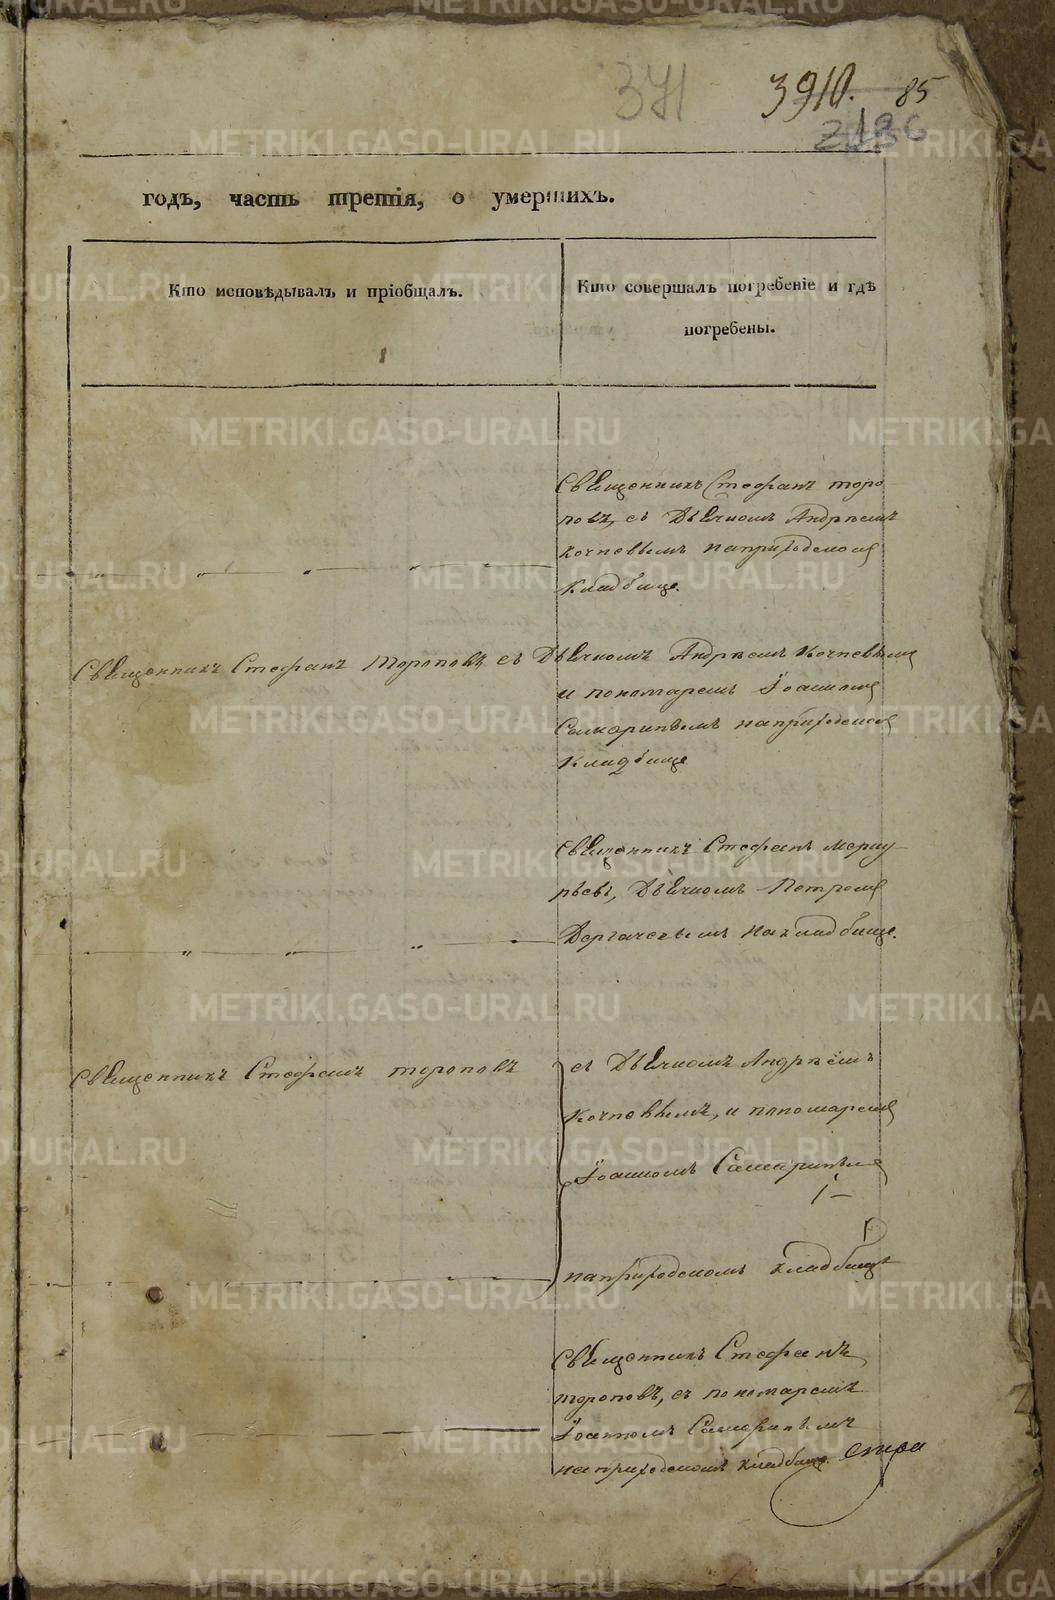 371
3910. 85
2136
годъ, часть третія, о умершихъ.
Кто исповѣдывалъ и пріобщалъ.
Кто совершалъ погребеніе и гдѣ
погребены.
Священникъ Стефанъ торо
повъ, съ Дьячкомъ Андрѣемъ
Кочневымъ наприходскомъ
Кладбище.
Священникъ Стефанъ Тороповъ съ Дьячкомъ Андрѣемъ Кочневымъ
и пономаремъ Іоанномъ
Самаринымъ наприходскомъ
Кладбище
Священникъ Стефанъ Мерку
рьевъ, Дьячкомъ Петромъ
Дергачевымъ накладбище.
Священникъ Стефанъ тороповъ
съ Дьячкомъ Андрѣемъ
Кочневымъ, и пономаремъ
Іоанномъ Самаринымъ
наприходскомъ кладбищѣ
Священникъ Стефанъ
тороповъ, съ пономаремъ
Іоанномъ Самаринымъ
наприходскомъ кладбище.
METRIKI.GASO-URAL.RU